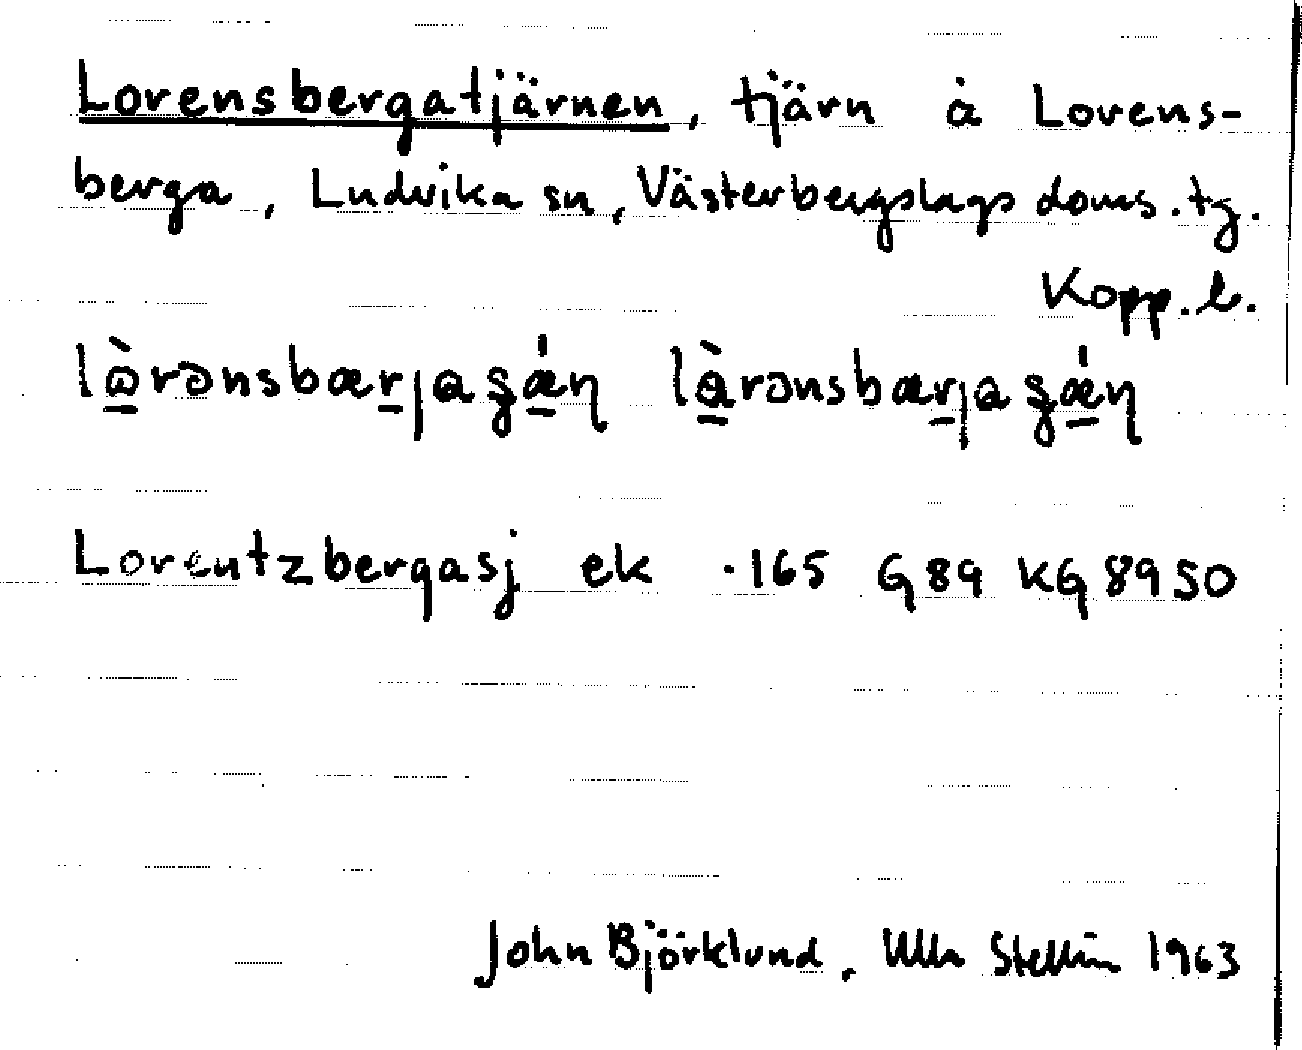 Lorensbergatjärnen, tjärn å Lorens-
berga, Ludvika sn, Västerbergslags doms. tg.
Kopp. l.
Lorentzbergasj ek .165 G89 KG 8950
John Björklund, Ulla Stellin 1963